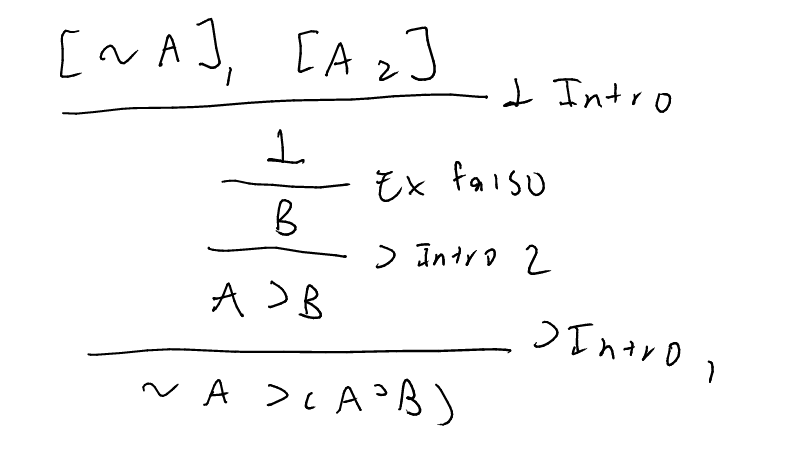 [~ A]₁ [A 2]
⊥ Intro
⊥
Ex falso
B
⊃ Intro 2
A ⊃ B
⊃ Intro 1
~ A ⊃ (A ⊃ B)